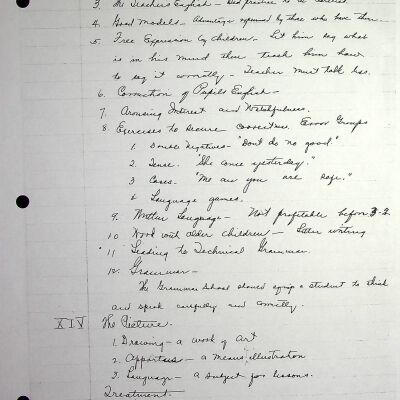 3. The Teachers English - Bad practice to be
4. Good Models - Advantage enjoyed by those who have them
5. Free Expression by Children - Let him say what
is in his mind then teach him how
to say it correctly - Teacher must talk less.
6. Correction of Pupils English -
7. Arousing Interest and Watchfulness.
8. Exercises to secure correctness. Error Groups
1. Double Negatives - "Don't do no good."
2. Tense. "She come yesterday."
3. Cases - "Me and you are safe."
4. Language games.
9. Written Language - Not profitable before 3-2
10 Work with older children - Letter writing
11 Leading to Technical Grammar.
12. Grammar -
The Grammar School should equip a student to think
and speak carefully and correctly.
XIV The Picture.
1. Drawing - a work of Art
2. Apparatus - a means illustration
3. Language - a subject for lessons.
Treatment.